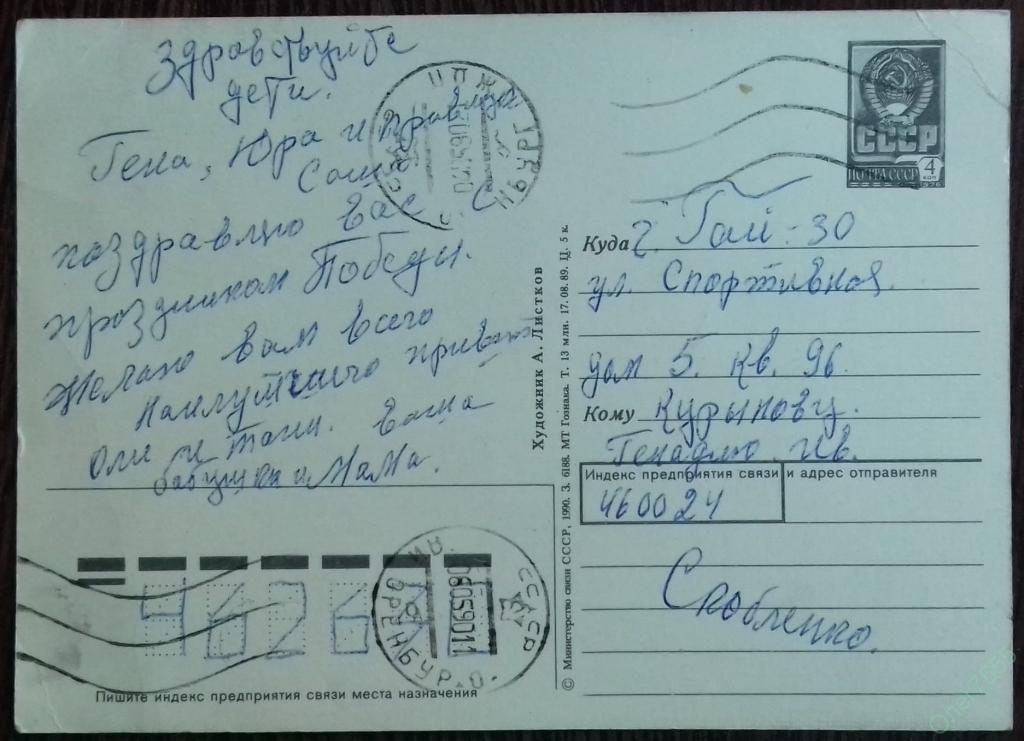 Здравствуйте
дети.
Гена, Юра и правнук
Саша
поздравляю вас с
праздником Победы.
Желаю вам всего
наилутшиго привет
Оли и Тани. ваша
бабушка и мама.
СССР
ПОЧТА СССР 4 КОП
1976
Куда г. Гай-30
ул. Спортивная
дом 5. кв. 96
Кому Курынову
Генадию Ив.
Индекс предприятия связи и адрес отправителя
460024
Скобленко.
Художник А. Листков
© Министерство связи СССР, 1990. З. 6188. МТ Гознака. Т. 13 млн. 17.08.89. Ц. 5 к.
46263
ГАЙ ОРЕНБУР. О.
СССР
08059011
Пишите индекс предприятия связи места назначения